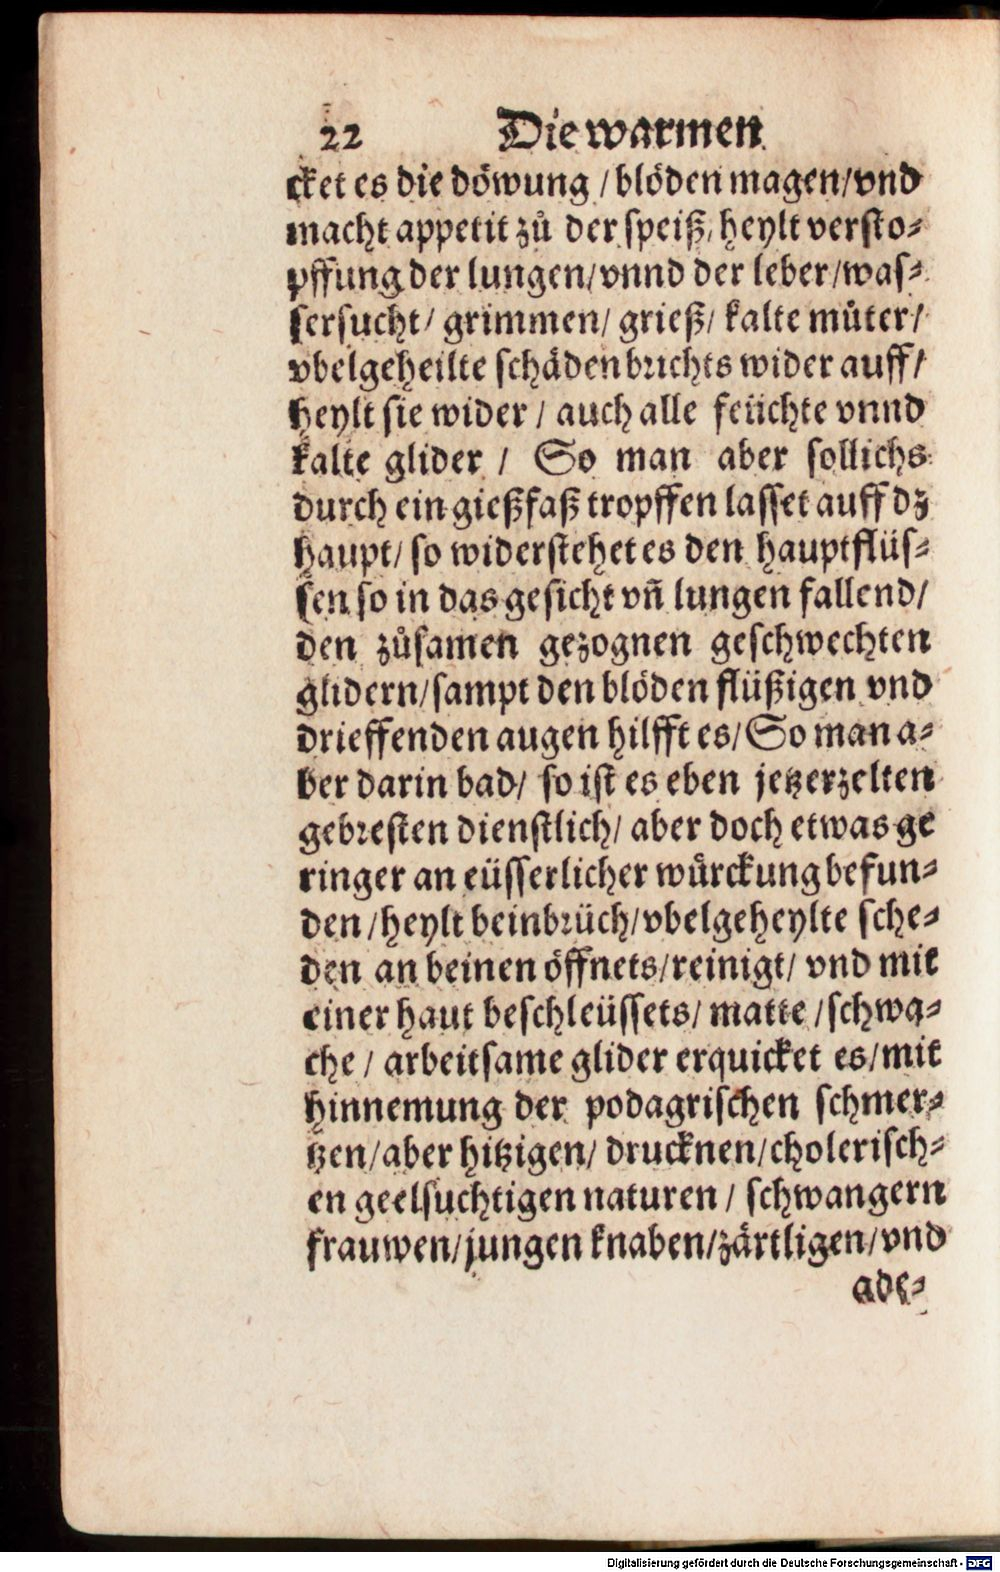 22 Die warmen
cket es die döwung / blöden magen / vnd
macht appetit zů der speiß / heylt versto⸗
pffung der lungen / vnnd der leber / was⸗
sersucht / grimmen / grieß / kalte můter /
vbelgeheilte schäden brichts wider auff /
heylt sie wider / auch alle feüchte vnnd
kalte glider / So man aber sollichs
durch ein gießfaß tropffen lasset auff dz
haupt / so widerstehet es den hauptflüs⸗
sen so in das gesicht vñ lungen fallend /
den zůsamen gezognen geschwechten
glidern / sampt den blöden flüßigen vnd
drieffenden augen hilfft es / So man a⸗
ber darin bad / so ist es eben jetzerzelten
gebresten dienstlich / aber doch etwas ge
ringer an eüsserlicher würckung befun⸗
den / heylt beinbrüch / vbelgeheylte sche⸗
den an beinen öffnets / reinigt / vnd mit
einer haut beschleüssets / matte / schwa⸗
che / arbeitsame glider erquicket es / mit
hinnemung der podagrischen schmer⸗
tzen / aber hitzigen / drucknen / cholerisch⸗
en geelsuchtigen naturen / schwangern
frauwen / jungen knaben / zärtligen / vnd
ade⸗
Digitalisierung gefördert durch die Deutsche Forschungsgemeinschaft - DFG